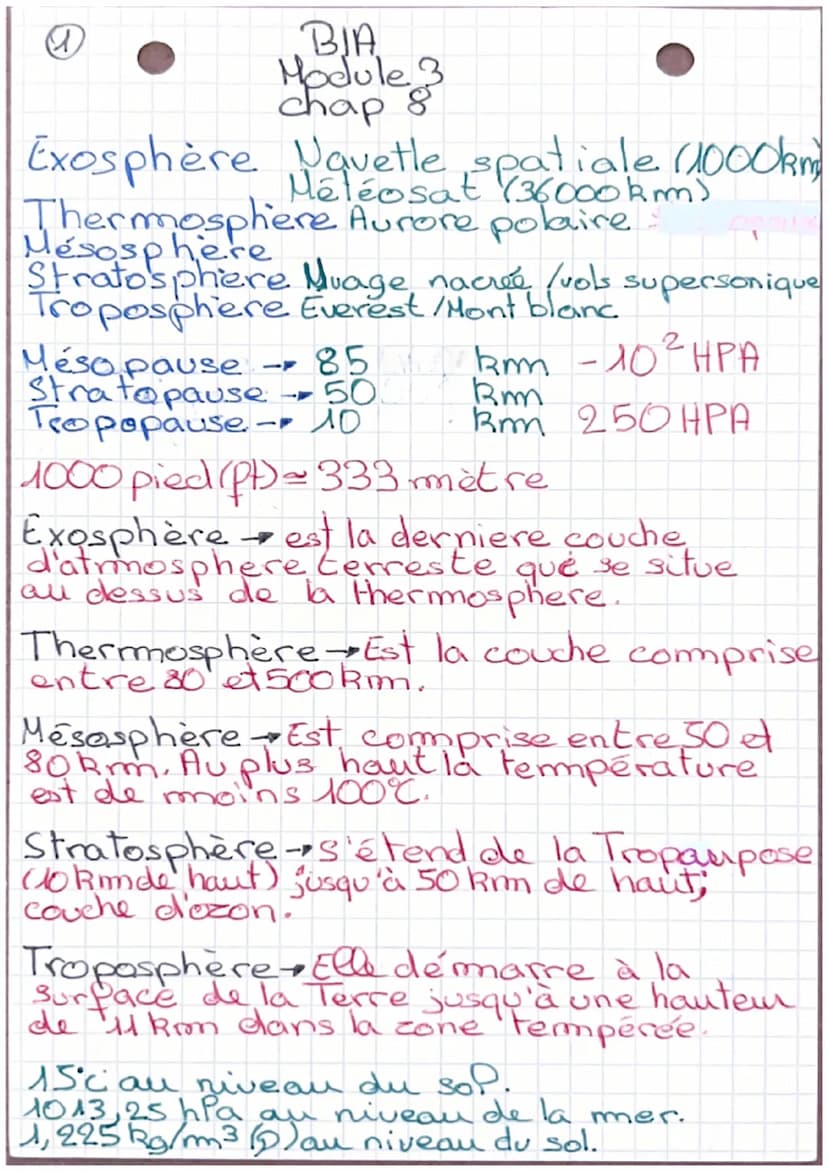 1
BIA
Module 3
chap 8
Exosphère Navette spatiale (1000km)
Météosat (36000km)
Thermosphère Aurore polaire
Mésosphère
Stratosphère Nuage nacrée /vols supersonique
Troposphère Everest /Mont blanc
Mésopause → 85 km -10² HPA
Stratopause → 50 km
Tropopause → 10 km 250 HPA
1000 pied (ft) ≃ 333 mètre
Exosphère → est la derniere couche
d'atmosphere terreste que se situe
au dessus de la thermosphere.
Thermosphère → Est la couche comprise
entre 80 et 500 km.
Mésosphère → Est comprise entre 50 et
80 km. Au plus haut la température
est de moins 100°C.
Stratosphère → s'étend de la Tropaupose
(10 km de haut) jusqu'à 50 km de haut;
couche d'ozon.
Troposphère → Elle démarre à la
surface de la Terre jusqu'à une hauteur
de 11 km dans la zone tempérée.
15°c au niveau du sol.
1013,25 hPa au niveau de la mer.
1,225 kg/m³ (ρ) au niveau du sol.